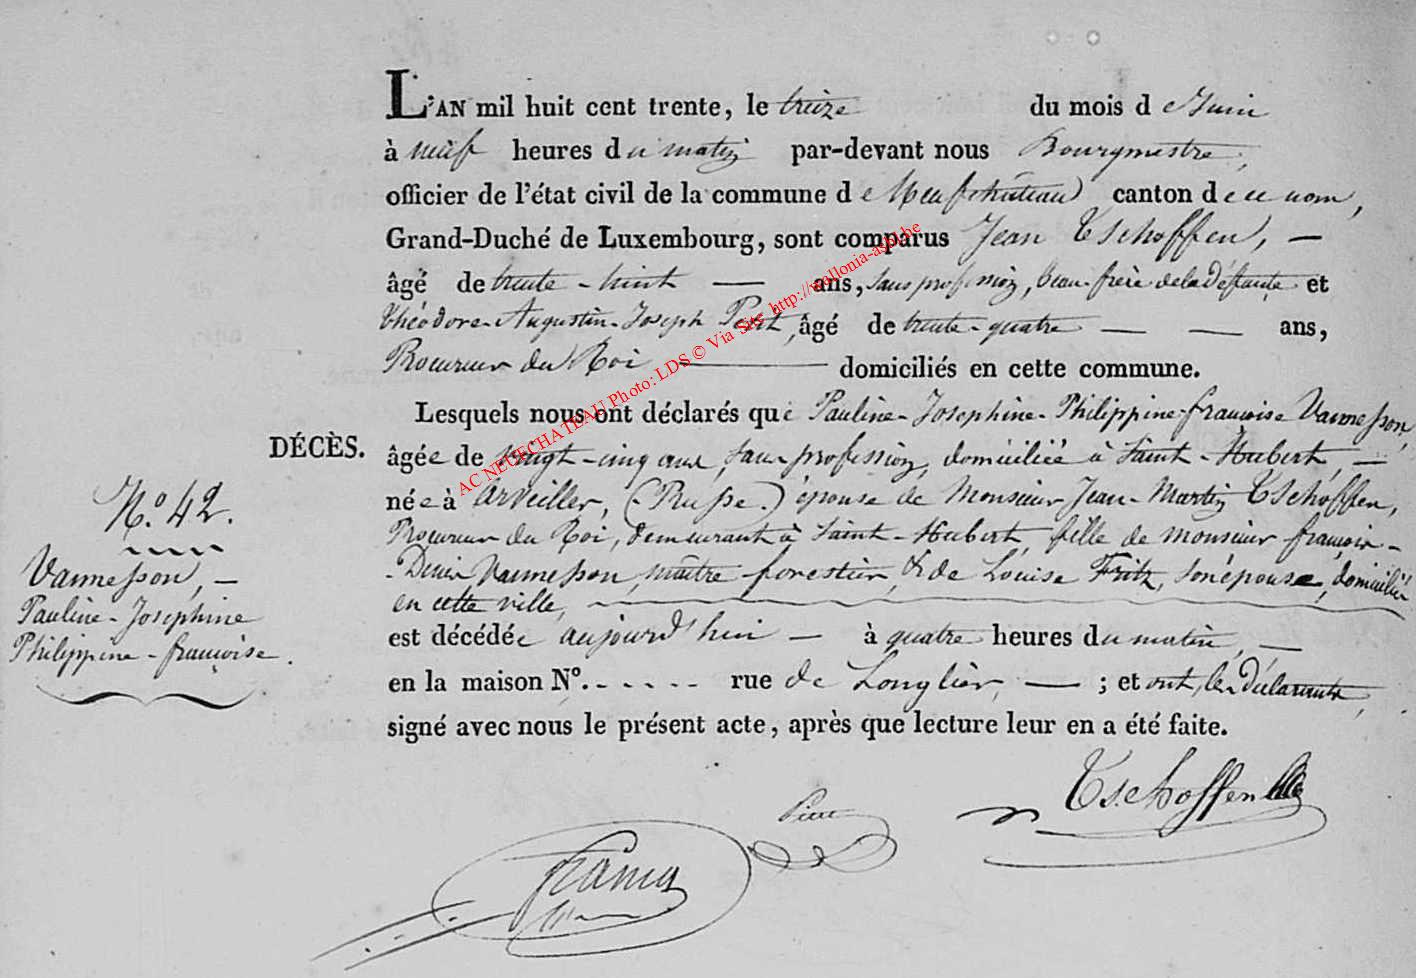 L'AN mil huit cent trente, le treize du mois de Juin
à neuf heures du matin par-devant nous Bourgmestre,
officier de l'état civil de la commune de Neufchâteau canton de ce nom,
Grand-Duché de Luxembourg, sont comparus Jean Tschoffen, —
âgé de trente-huit — ans, sans profession, beau-frère de la Défunte et
Théodore-Augustin-Joseph âgé de trente-quatre — — ans,
Procureur du Roi — domiciliés en cette commune.
Lesquels nous ont déclarés que Pauline-Josephine-Philippine-françoise Vannesson,
DÉCÈS. âgée de vingt-cinq ans, sans profession, domiciliée à Saint-Hubert, —
née à Arveiller, (Prusse.) épouse de Monsieur Jean-Martin Tschoffen,
Procureur du Roi, demeurant à Saint-Hubert, fille de monsieur françois-
-Denis Vannesson, maître forestier, & de Louise Fritz, son épouse, domiciliés
en cette ville,
est décédée aujourd'hui — à quatre heures du matin, —
en la maison N°. - - - - - rue de Longlier, — ; et ont, les déclarants,
signé avec nous le présent acte, après que lecture leur en a été faite.
N° 42.
Vannesson, —
Pauline-Josephine
Philippine-françoise.
Tschoffen
AC NEUFCHATEAU Photo: LDS © Via Site http://wallonia-asbl.be